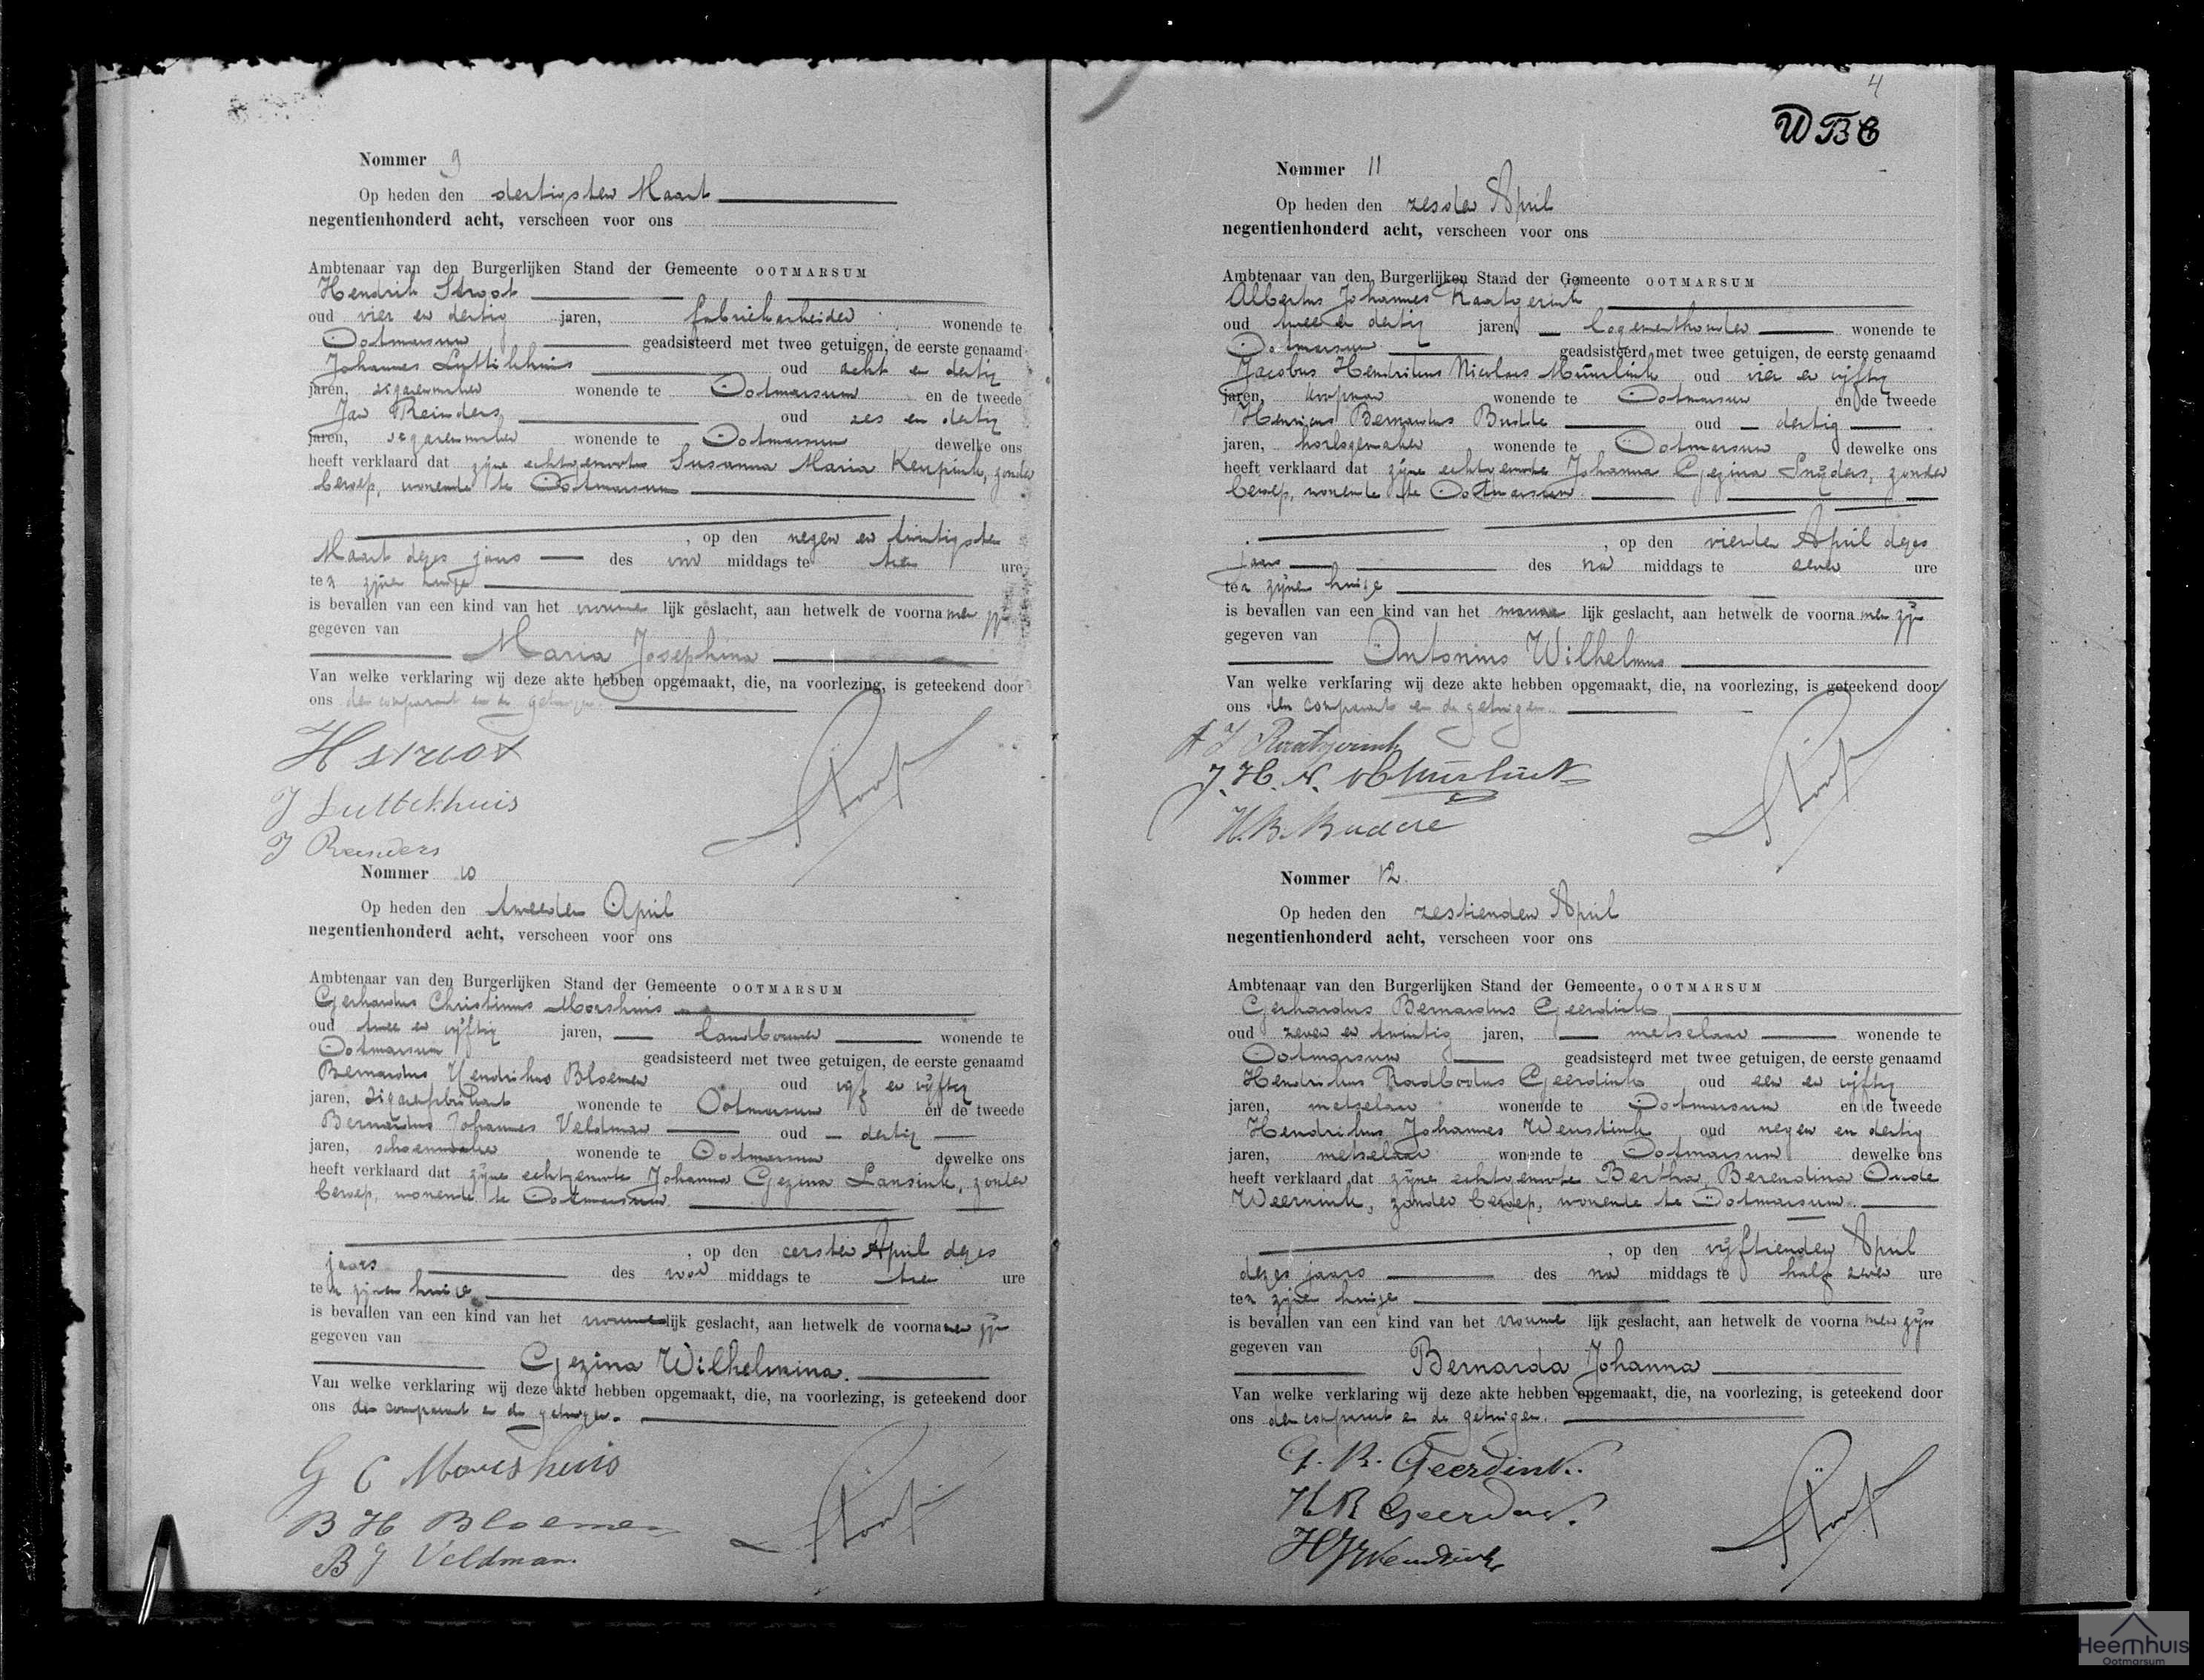 Nommer 9
Op heden den dertigsten Maart
negentienhonderd acht, verscheen voor ons
Ambtenaar van den Burgerlijken Stand der Gemeente OOTMARSUM
Hendrik Stroot
oud vier en dertig jaren, fabriekarbeider wonende te
Ootmarsum geadsisteerd met twee getuigen, de eerste genaamd
Johannes Luttikhuis oud acht en dertig
jaren, sigarenmaker wonende te Ootmarsum en de tweede
Jan Reinders oud zes en dertig
jaren, sigarenmaker wonende te Ootmarsum dewelke ons
heeft verklaard dat zijne echtgenoote Susanna Maria Keupink, zonder
beroep, wonende te Ootmarsum
, op den negen en twintigsten
Maart dezes jaars des voor middags te tien ure
ten zijnen huize
is bevallen van een kind van het vrouwe lijk geslacht, aan hetwelk de voorna men zijn
gegeven van
Maria Josephina
Van welke verklaring wij deze akte hebben opgemaakt, die, na voorlezing, is geteekend door
ons den comparant en de getuigen.
H Stroot
J Luttekhuis
J Reinders
Nommer 10
Op heden den tweeden April
negentienhonderd acht, verscheen voor ons
Ambtenaar van den Burgerlijken Stand der Gemeente OOTMARSUM
Gerhardus Christinus Morshuis
oud twee en vijftig jaren, landbouwer wonende te
Ootmarsum geadsisteerd met twee getuigen, de eerste genaamd
Bernardus Hendrikus Bloemen oud vijf en vijftig
jaren, sigarenfabrikant wonende te Ootmarsum en de tweede
Bernardus Johannes Veldman oud dertig
jaren, schoenmaker wonende te Ootmarsum dewelke ons
heeft verklaard dat zijne echtgenoote Johanna Gezina Lansink, zonder
beroep, wonende te Ootmarsum
, op den eersten April dezes
jaars des voor middags te tien ure
ten zijnen huize
is bevallen van een kind van het vrouwe lijk geslacht, aan hetwelk de voorna men zijn
gegeven van
Gezina Wilhelmina.
Van welke verklaring wij deze akte hebben opgemaakt, die, na voorlezing, is geteekend door
ons den comparant en de getuigen.
G C Morshuis
B H Bloemen
B J Veldman
4
WBC
Nommer 11
Op heden den zesden April
negentienhonderd acht, verscheen voor ons
Ambtenaar van den Burgerlijken Stand der Gemeente OOTMARSUM
Albertus Johannes Raatgerink
oud twee en dertig jaren, logementhouder wonende te
Ootmarsum geadsisteerd met twee getuigen, de eerste genaamd
Jacobus Hendrikus Nicolaas Muurlink oud vier en vijftig
jaren, koopman wonende te Ootmarsum en de tweede
Henricus Bernardus Budde oud dertig
jaren, horlogemaker wonende te Ootmarsum dewelke ons
heeft verklaard dat zijne echtgenoote Johanna Gezina Snijders, zonder
beroep, wonende te Ootmarsum
, op den vierden April dezes
jaars des na middags te zeven ure
ten zijnen huize
is bevallen van een kind van het manne lijk geslacht, aan hetwelk de voorna men zijn
gegeven van
Antonius Wilhelmus
Van welke verklaring wij deze akte hebben opgemaakt, die, na voorlezing, is geteekend door
ons den comparant en de getuigen.
A J Raatgerink
J. H. N. Muurlink
H. B. Budde
Nommer 12.
Op heden den zestienden April
negentienhonderd acht, verscheen voor ons
Ambtenaar van den Burgerlijken Stand der Gemeente, OOTMARSUM
Gerhardus Bernardus Geerdink
oud zeven en twintig jaren, metselaar wonende te
Ootmarsum geadsisteerd met twee getuigen, de eerste genaamd
Hendrikus Radbodus Geerdink oud een en vijftig
jaren, metselaar wonende te Ootmarsum en de tweede
Hendrikus Johannes oud negen en dertig
jaren, metselaar wonende te Ootmarsum dewelke ons
heeft verklaard dat zijne echtgenoote Bertha Berendina Oude
Weernink, zonder beroep, wonende te Ootmarsum.
, op den vijftienden April
dezes jaars des na middags te half zeven ure
ten zijnen huize
is bevallen van een kind van het vrouwe lijk geslacht, aan hetwelk de voorna men zijn
gegeven van
Bernarda Johanna
Van welke verklaring wij deze akte hebben opgemaakt, die, na voorlezing, is geteekend door
ons den comparant en de getuigen.
G. B. Geerdink.
H R Geerdink.
Heemhuis
Ootmarsum